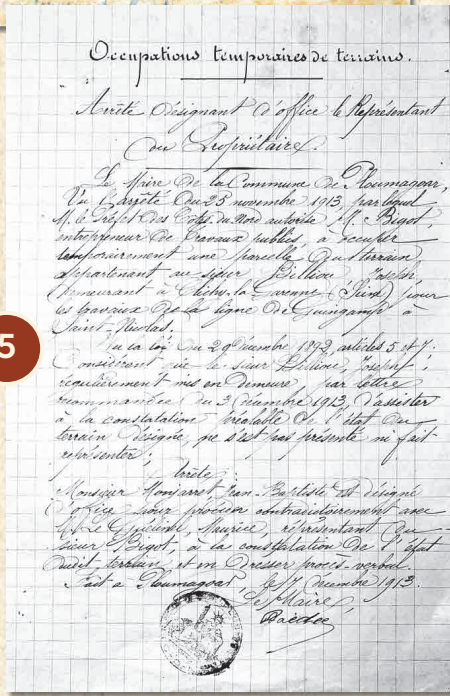 Occupations temporaires de terrains.
Arrêté désignant d'office le Représentant
du Propriétaire.
Le Maire de la Commune de Ploumagoar,
Vu l'arrêté du 25 novembre 1913, par lequel
M. le préfet des Côtes du Nord autorise M. Bigot,
entrepreneur de travaux publics, à occuper
temporairement une parcelle de terrain,
appartenant au sieur Billiou Joseph,
demeurant à Clichy-la-Garenne (Seine) pour
les travaux de la ligne de Guingamp à
Saint-Nicolas.
Vu la loi du 29 décembre 1892, articles 5 et 7;
Considérant que le sieur Billiou, Joseph,
régulièrement mis en demeure, par lettre
recommandée du 3 décembre 1913, d'assister
à la constatation préalable de l'état du
terrain désigné, ne s'est pas présenté ni fait
représenter;
Arrête:
Monsieur Jean-Baptiste est désigné
d'office pour procéder contradictoirement avec
M. Maurice, représentant du
sieur Bigot, à la constatation de l'état
dudit terrain et en dresser procès-verbal.
Fait à Ploumagoar le 17 décembre 1913.
Le Maire,
5